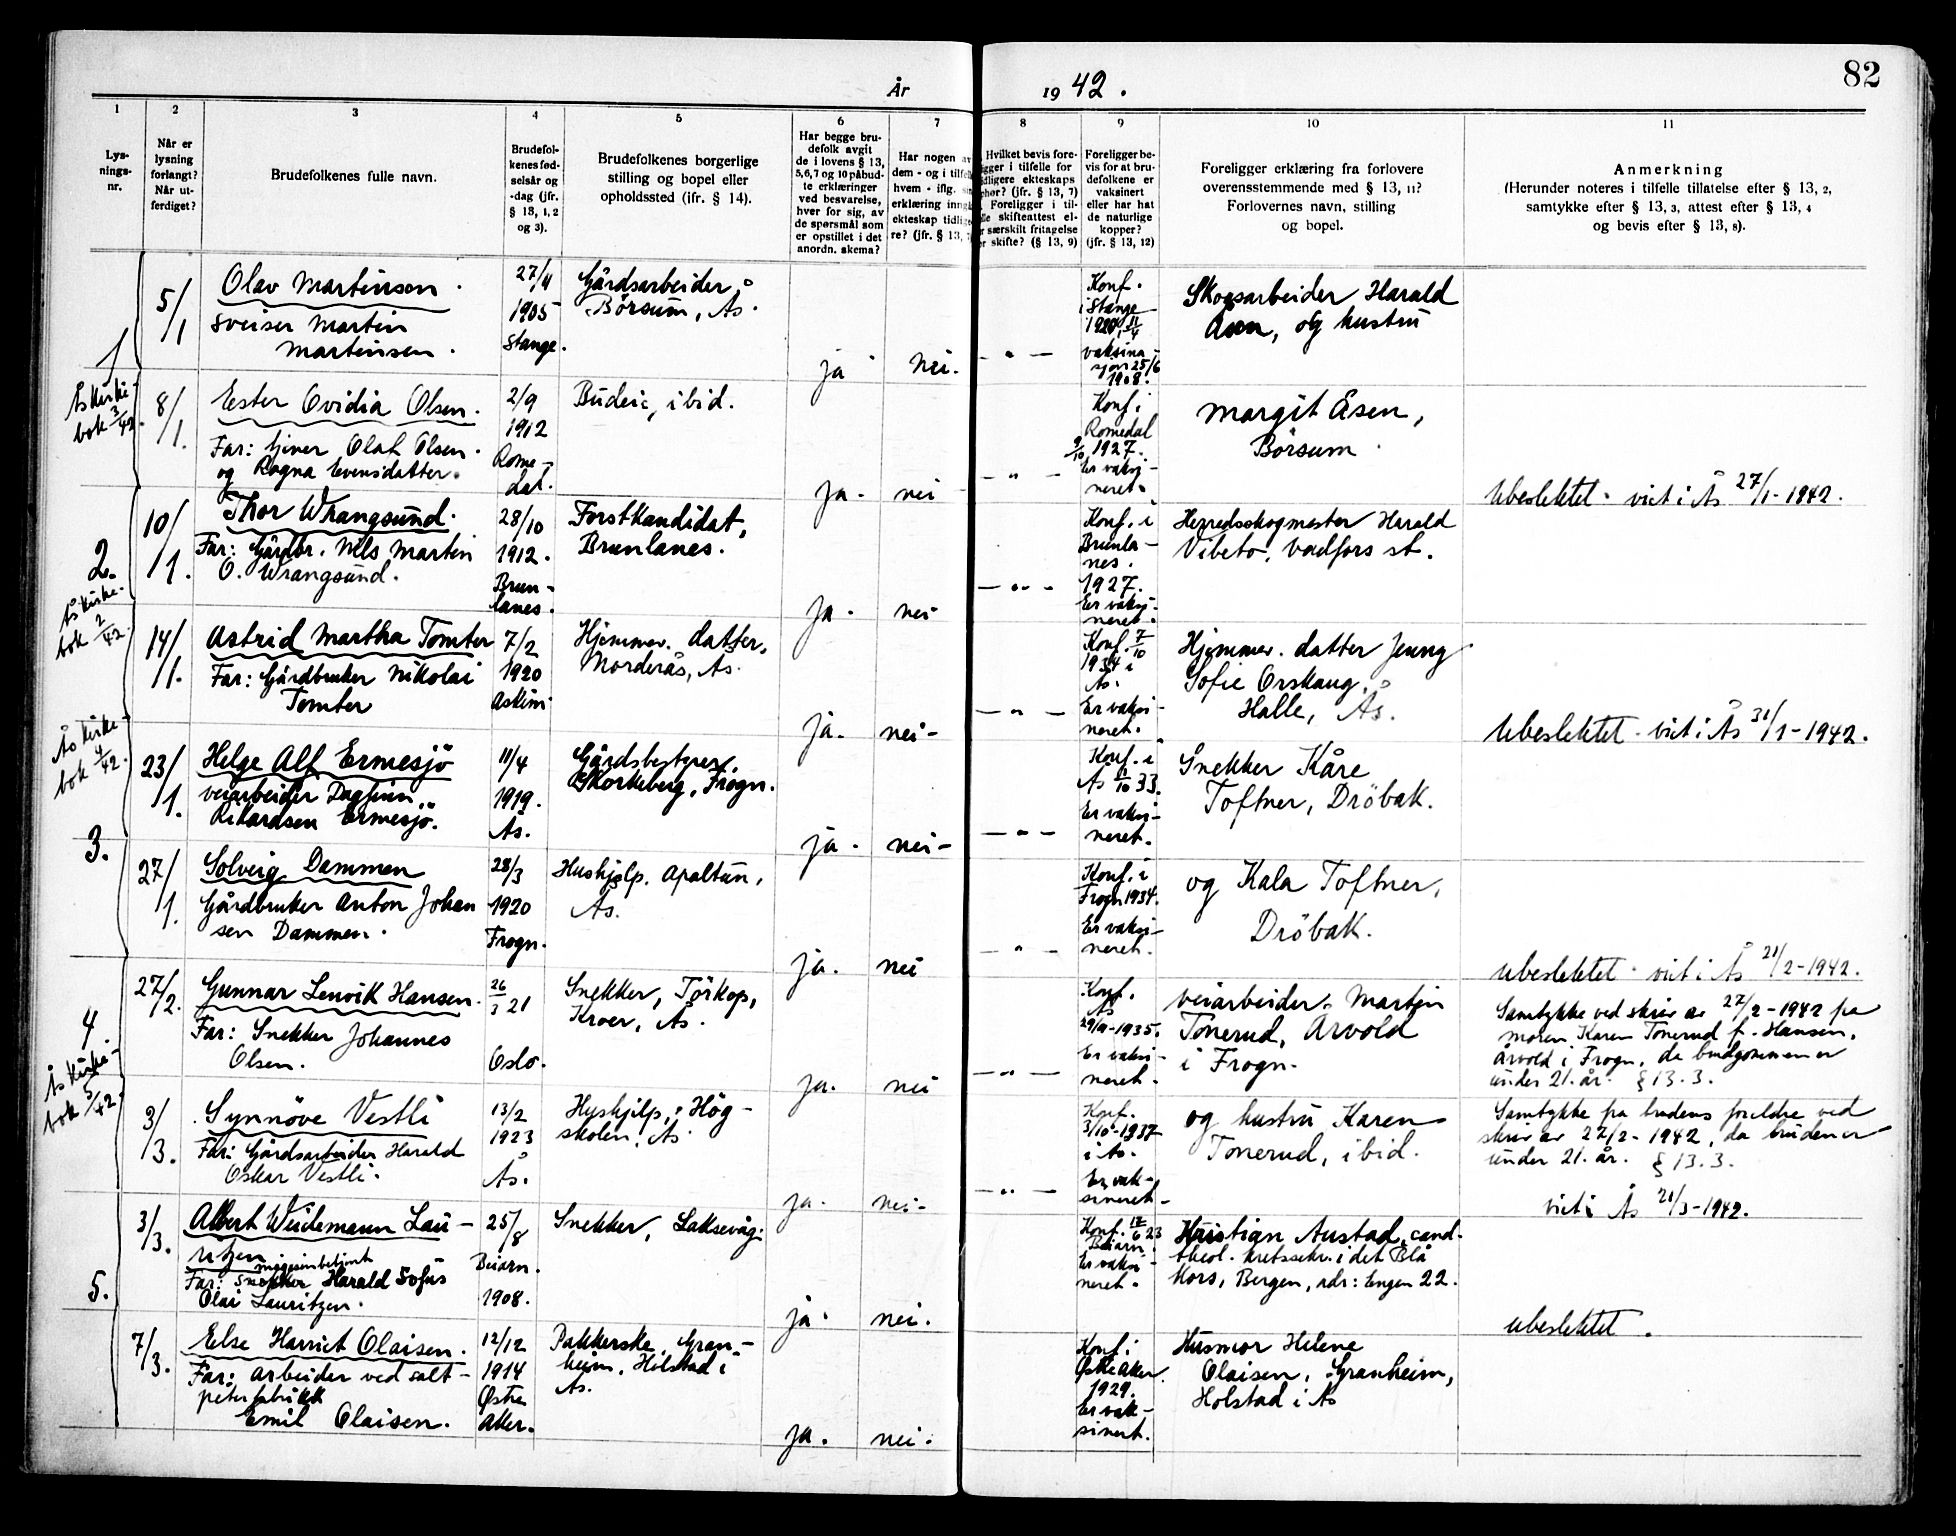 82
År 1942.
1
Lys-
nings-
nr.
2
Når er
lysning
forlangt?
Når ut-
ferdiget?
3
Brudefolkenes fulle navn.
4
Brudefol-
kenes fød-
selsår og
-dag (jfr.
§ 13, 1, 2
og 3).
5
Brudefolkenes borgerlige
stilling og bopel eller
opholdssted (ifr. § 14).
6
Har begge bru-
defolk avgit
de i lovens § 13,
5, 6, 7 og 10 påbud-
te erklæringer
ved besvarelse,
hver for sig, av
de spørsmål som
er opstillet i det
anordn. skema?
7
Har nogen av
dem - og i tilfelle
hvem - iflg.
erklæring inng
ekteskap tidlig
re? (jfr. § 13,
8
Hvilket bevis fore-
ligger i tilfelle for
idligere ekteskaps
phør? (jfr. § 13, 7)
Foreligger i til-
lle skifteattest el-
r særskilt fritagelse
or skifte? (§ 13, 9)
9
Foreligger be-
vis for at bru-
defolkene er
vaksinert
eller har hat
de naturlige
kopper?
(jfr. § 13, 12)
10
Foreligger erklæring fra forlovere
overensstemmende med § 13, 11?
Forlovernes navn, stilling
og bopel.
11
Anmerkning
(Herunder noteres i tilfelle tillatelse efter § 13, 2,
samtykke efter § 13, 3, attest efter § 13, 4
og bevis efter § 13, 8).
1
Ås kirke-
bok 3/42.
5/1
Olav Martinsen.
Sveiser Martin
Martinsen.
27/4
1905
Stange.
Gårdsarbeider,
Börsum, Ås.
ja
nei.
— " —
Konf.
i Stange
1920 11/4
vaksina-
sjon 25/6
1908.
Skogsarbeider Harald
Åsen, og hustru
8/1.
Ester Ovidia Olsen.
Far: Giver Olaf Olsen.
og Ragna Evensdatter.
2/9
1912
Rome-
dal.
Budeie, ibid.
ja.
nei
— " —
Konf. i
Romedal
9/10 1927.
Er vaksi-
neret.
Margit Åsen,
Börsum.
Ubeslektet. viet i Ås 27/1-1942.
2.
Ås kirke-
bok 2/42.
10/1.
Thor Wrangsund.
Far: Gårdbr. Nils Martin
O. Wrangsund.
28/10
1912.
Brun-
lanes.
Forstkandidat,
Brunlanes.
ja.
nei
— " —
Konf. i
Brunla-
nes.
1927.
Er vaksi-
neret.
Herredsskogmester Harald
Vibeto, Vadfors st.
14/1.
Astrid Martha Tomter
Far: Gårdbruker Nikolai
Tomter
7/2
1920
Askim
Hjemmev. datter,
Norderås, Ås.
ja.
nei-
— " —
Konf. 7/10
1934 i
Ås.
Er vaksi-
neret.
Hjemmev. datter Jenny
Sofie Orskaug,
Halle, Ås.
Ubeslektet. viet i Ås 31/1-1942.
3.
Ås kirke-
bok 4/42.
23/1.
Helge Alf Ermesjö
veiarbeider Dagfinn
Rikardsen Ermesjö.
11/4
1919.
Ås.
Gårdsbestyrer,
Skorkeberg, Frogn.
ja.
nei-
— " —
Konf. i
Ås 1/10 33.
Er vaksi-
neret.
Snekker Kåre
Toftner, Dröbak.
27/1.
Solveig Dammen
Gårdbruker Anton Johan
sen Dammen.
28/3
1920
Frogn.
Hushjelp. Apaltun,
Ås.
ja.
nei
— " —
Konf. i
Frogn 1934.
Er vaksi-
neret.
og Kala Toftner,
Dröbak.
Ubeslektet. viet i Ås 21/2-1942.
4
Ås kirke-
bok 5/42.
27/2.
Gunnar Lenvik Hansen.
Far: Snekker Johannes
Olsen.
26/3 21
Oslo.
Snekker, Törkop,
Kroer, Ås.
ja.
nei
— " —
Konf.
Ås
29/9-1935.
Er vaksi-
neret.
Veiarbeider Martin
Tonerud, Årvold
i Frogn.
Samtykke ved skriv av 27/2-1942 fra
moren Karen Tonerud f. Hansen,
Årvold i Frogn, da brudgommen er
under 21. år. § 13. 3.
3/3.
Synnöve Vestli
Far: Gårdsarbeider Harald
Oskar Vestli.
13/2
1923
Ås.
Hushjelp, Hög-
skolen, Ås.
ja.
nei-
— " —
Konf.
3/10-1937
i Ås.
Er vak-
sineret-
og hustru Karen
Tonerud, ibid.
Samtykke fra brudens foreldre ved
skriv av 27/2-1942, da bruden er
under 21. år. § 13. 3.
viet i Ås 21/3-1942.
5.
3/3.
Albert Weidemann Lau-
ritzen
Far: Harald Sofus
Olai Lauritzen.
25/8
Beiarn.
1908.
Snekker, Laksevåg.
ja.
nei.
Konf. 17/6 23
Beiarn.
Er vaksi-
neret.
Kristian Austad, cand.
theol. kretssekr. i det Blå
Kors, Bergen, adr: Engen 22.
7/3.
Else Harriet Olaisen.
Far: Arbeider ved salt-
peterfabrikk
Emil Olaisen.
12/12
1914
Østre
Aker.
Pakkerske, Gran-
heim, Holstad i
Ås.
ja.
nei.
Konf. i
Østre Aker.
1929.
Er vak-
sinert.
Husmor Helene
Olaisen, Granheim,
Holstad i Ås
ubeslektet.